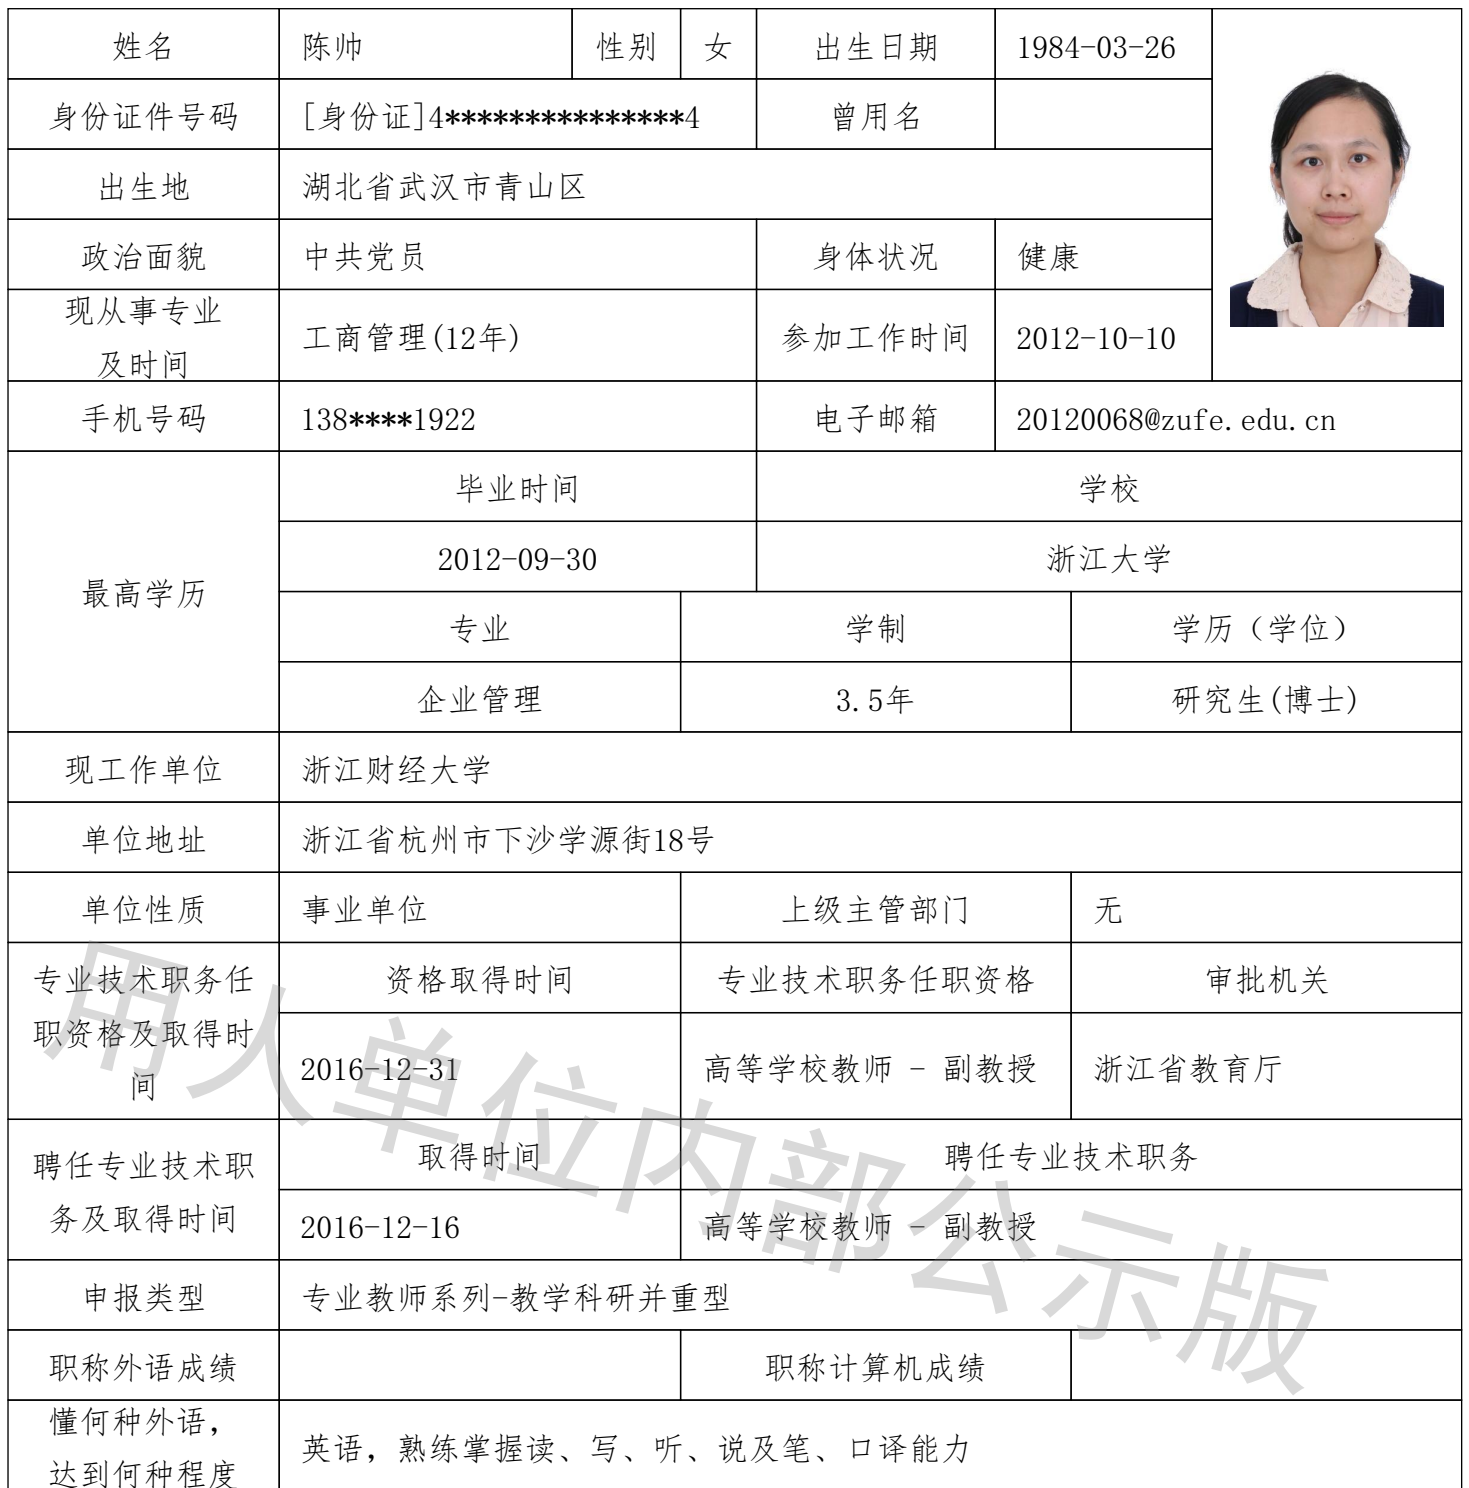 姓名 陈帅 性别 女 出生日期 1984-03-26
身份证件号码 [身份证]4***************4 曾用名
出生地 湖北省武汉市青山区
政治面貌 中共党员 身体状况 健康
现从事专业
及时间
工商管理(12年) 参加工作时间 2012-10-10
手机号码 138****1922 电子邮箱 20120068@zufe.edu.cn
最高学历
毕业时间 学校
2012-09-30 浙江大学
专业 学制 学历（学位）
企业管理 3.5年 研究生(博士)
现工作单位 浙江财经大学
单位地址 浙江省杭州市下沙学源街18号
单位性质 事业单位 上级主管部门 无
专业技术职务任
职资格及取得时
间
资格取得时间 专业技术职务任职资格 审批机关
2016-12-31 高等学校教师 - 副教授 浙江省教育厅
聘任专业技术职
务及取得时间
取得时间 聘任专业技术职务
2016-12-16 高等学校教师 - 副教授
申报类型 专业教师系列-教学科研并重型
职称外语成绩 职称计算机成绩
懂何种外语，
达到何种程度
英语，熟练掌握读、写、听、说及笔、口译能力
用人单位内部公示版